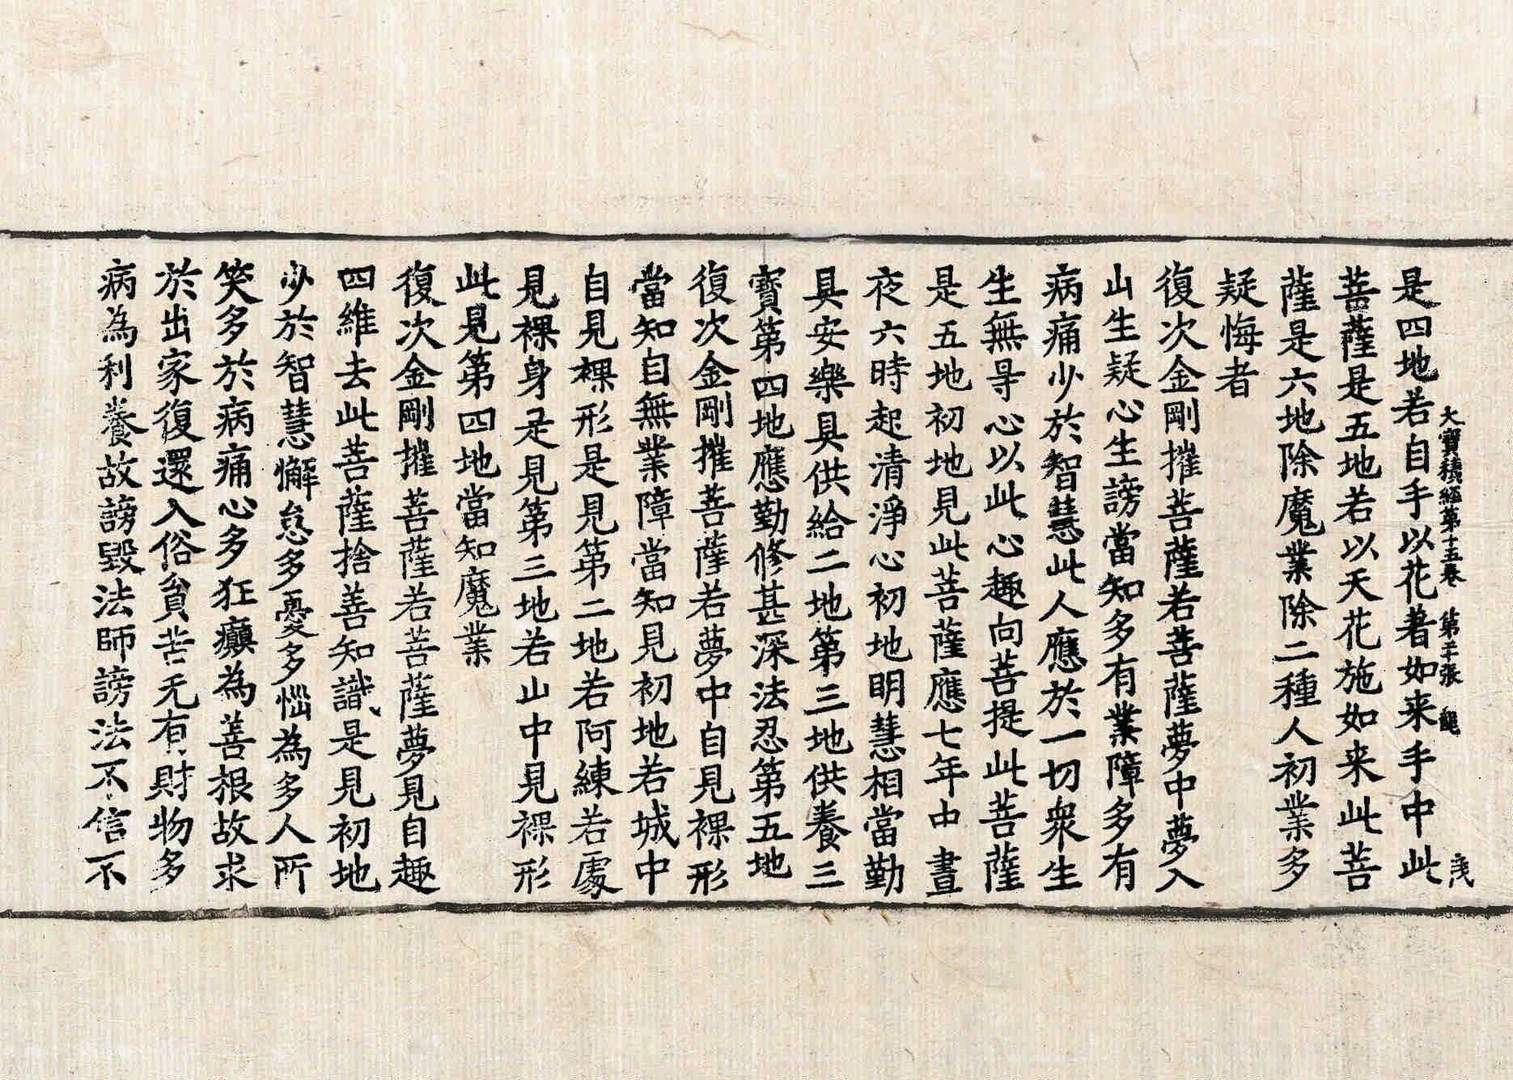 大寶積經第十五卷 第二十張
是四地若自手以花著如来手中此
菩薩是五地若以天花施如来此菩
薩是六地除魔業除二種人初業多
疑悔者
復次金剛摧菩薩若菩薩夢中夢入
山生疑心生謗當知多有業障多有
病痛少於智慧此人應於一切衆生
生無㝵心以此心趣向菩提此菩薩
是五地初地見此菩薩應七年中晝
夜六時起清淨心初地明慧相當勤
具安樂具供給二地第三地供養三
寶第四地應勤修甚深法忍第五地
復次金剛摧菩薩若夢中自見裸形
當知自無業障當知見初地若城中
自見裸形是見第二地若阿練若處
見裸身是見第三地若山中見裸形
此見第四地當知魔業
復次金剛摧菩薩若菩薩夢見自趣
四維去此菩薩捨善知識是見初地
少於智慧懈怠多憂多惱為多人所
笑多於病痛心多狂癲為善根故求
於出家復還入俗貧苦无有財物多
病為利養故謗毀法師謗法不信不